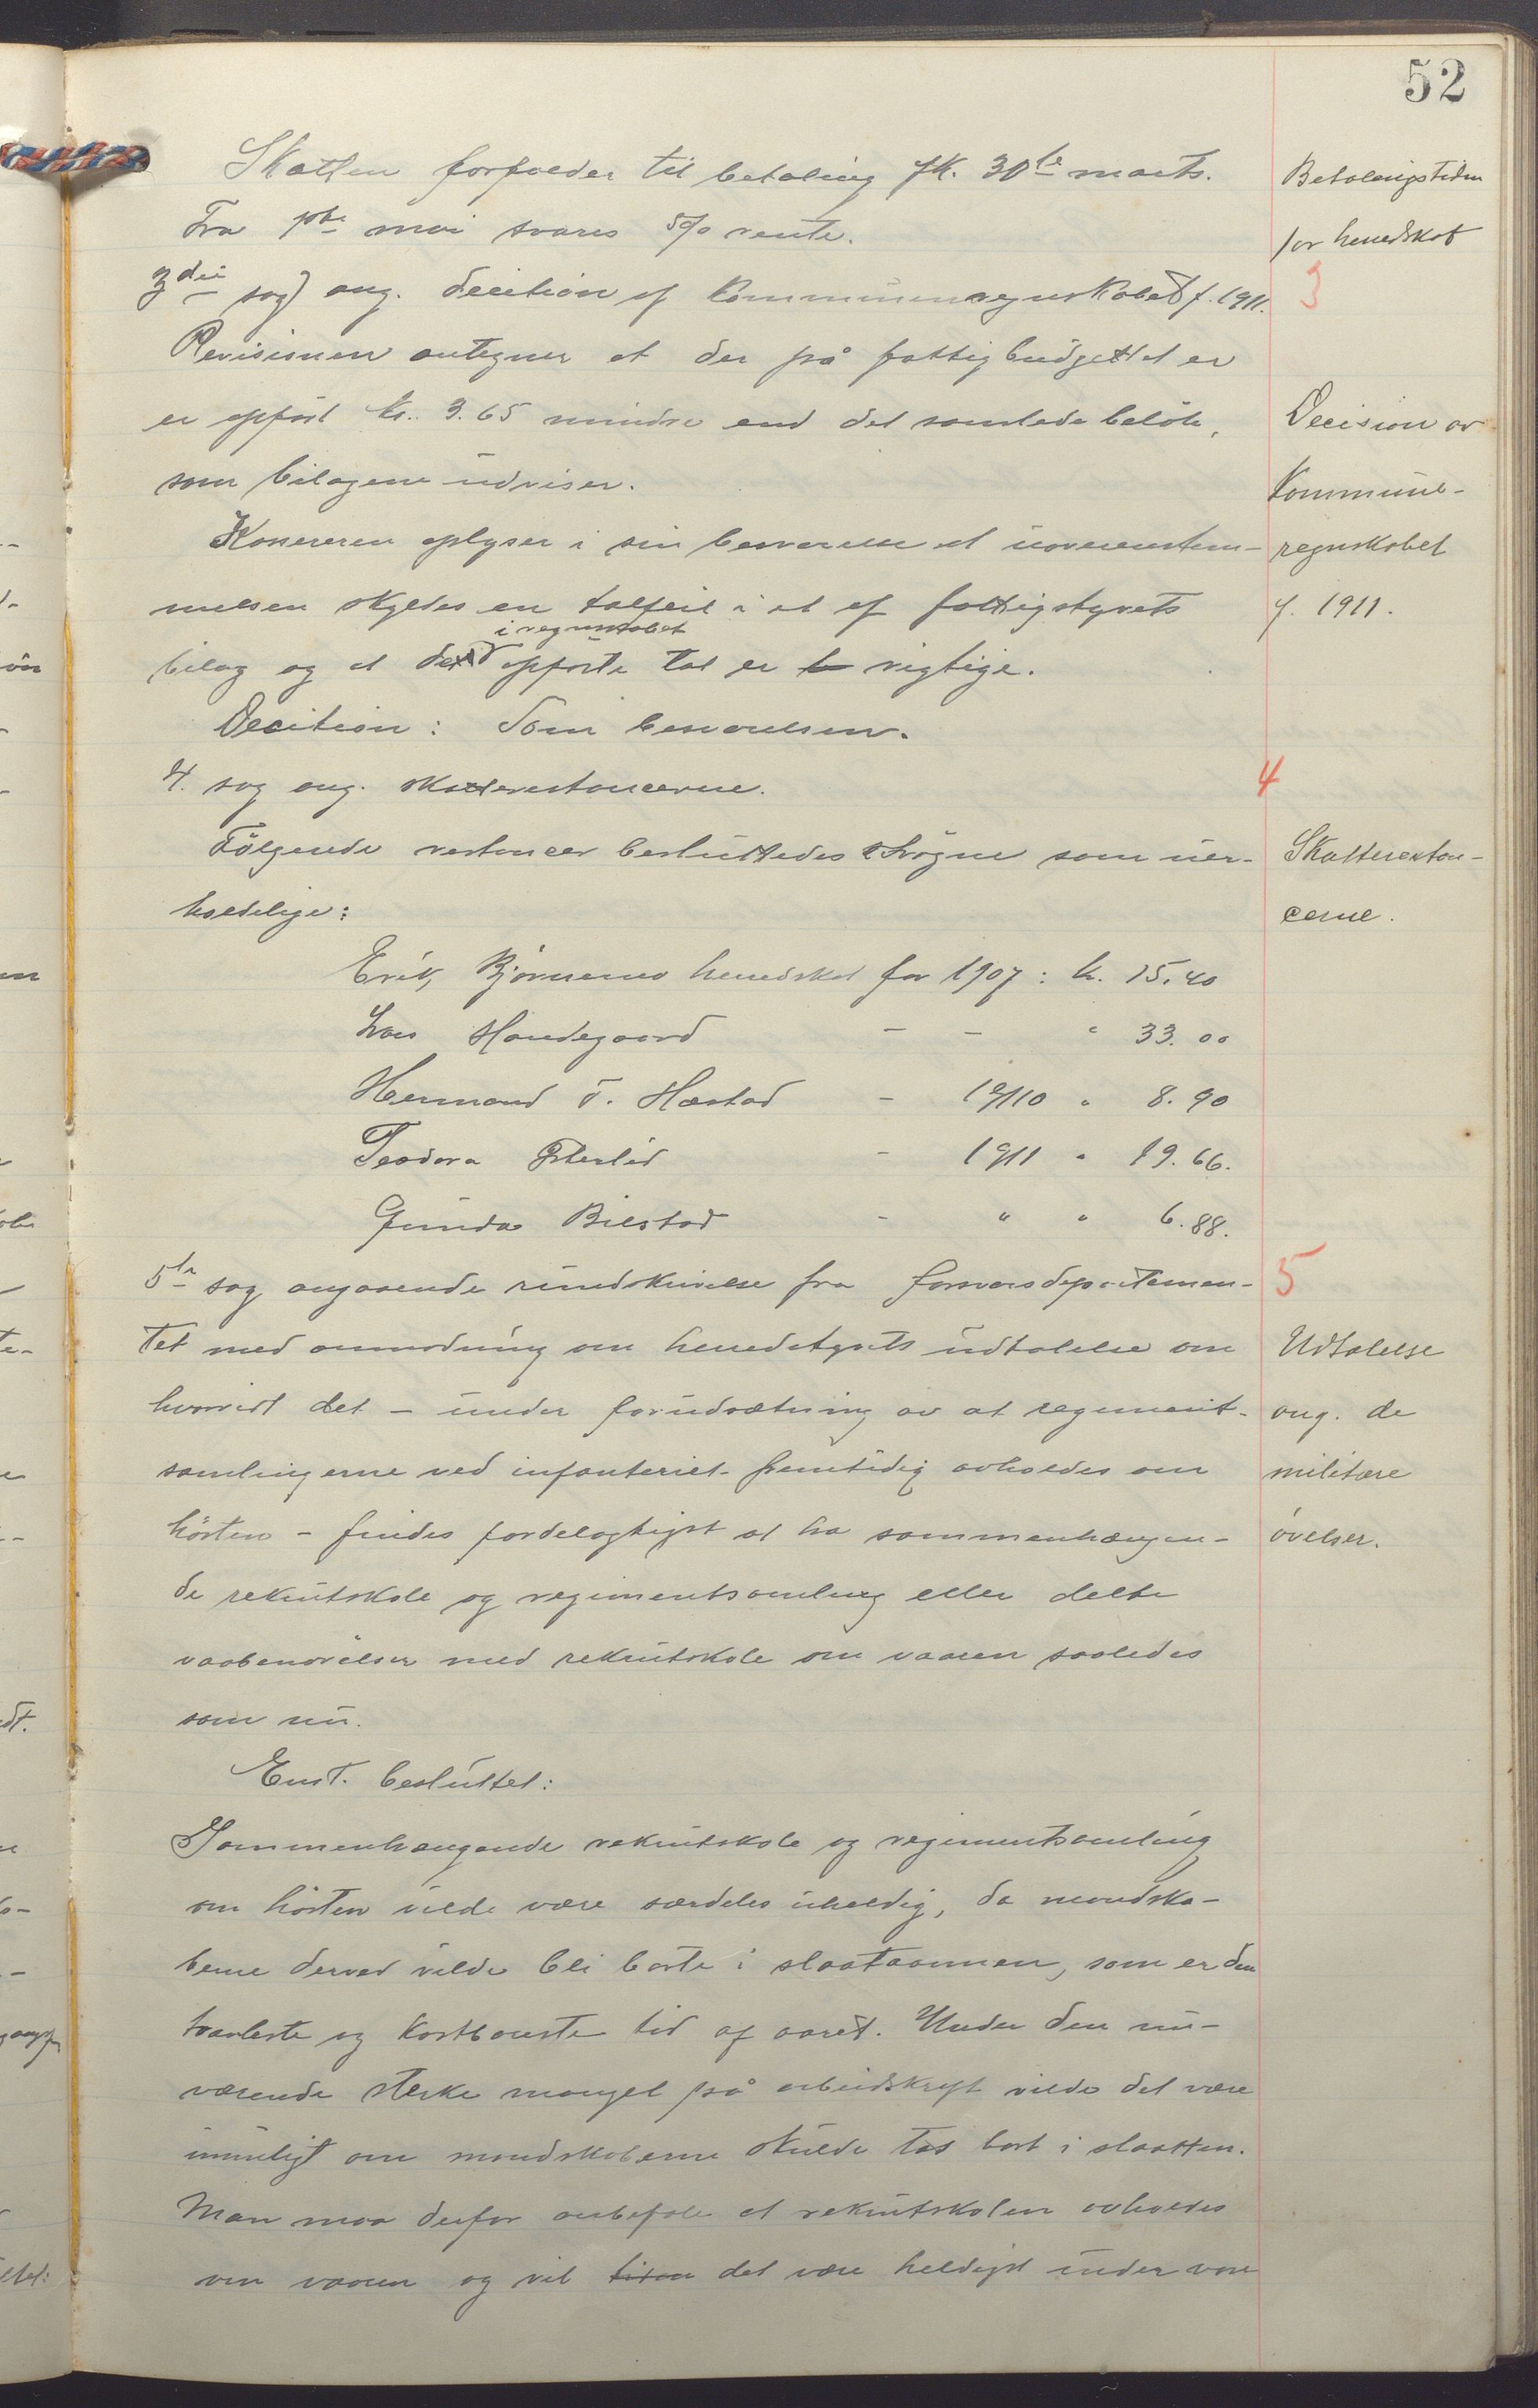 52
Skatten forfalder til betaling fk. 30te marts.
Fra 1ste mai svares 5% rente.
Betalingstiden
for herredskat
3die sag) ang. decition af kommuneregnskabet f. 1911.
3
Revisionen antegner at der på fattigbudgettet er
er opført kr. 3.65 mindre end det samlede beløb,
som bilagene udviser.
Decision av
kommune-
regnskabet
f. 1911.
Kasereren oplyser i sin besvarelse at uoverenstem-
melsen skyldes en talfeil i et af fattigstyrets
i regnskabet
bilag og at de opførte tal er rigtige.
Decition: Som besvarelsen.
4. sag ang. skatterestancerne.
4
Følgende restancer besluttedes strøgne som uer-
holdelige:
Skatterestan-
cerne.
Erik Bjørnemo herredskat for 1907: kr. 15.40
Lars Handegaard - - " 33.00
Hermand T. Hæstad - 1910 " 8.90
Teodora - 1911 " 19.66.
Gunda Bilstad - " " 6.88.
5te sag angaaende rundskrivelse fra forsvarsdepartemen-
5
tet med anmodning om herredstyrets udtalelse om
hvorvidt det - under forudsætning av at regiment-
samlingerne ved infanteriet fremtidig avholdes om
høsten - findes fordelagtigst at ha sammenhængen-
de rekrutskole og regimentsamling eller delte
vaabenøvelser med rekrutskole om vaaren saaledes
som nu.
Udtalelse
ang. de
militære
øvelser.
Enst. besluttet:
Sammenhængende rekrutskole og regimentsamling
om høsten vilde være særdeles uheldig, da mandska-
berne derved vilde bli borte i slaataannen, som er den
travleste og kostbareste tid af aaret. Under den nu-
værende sterke mangel på arbeidskraft vilde det være
umuligt om mandskaberne skulde tas bort i slaatten.
Man maa derfor anbefale at rekrutskolen avholdes
om vaaren og vil det være heldigst under vore